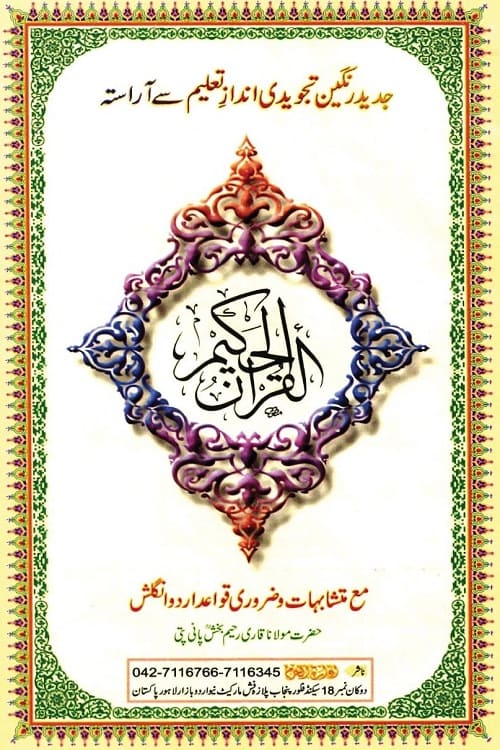 جدید رنگین تجویدی اندازِ تعلیم سے آراستہ
القرآن الحکیم
مع متشابہات و ضروری قواعد اردو انگلش
حضرت مولانا قاری رحیم بخشؒ پانی پتی
ناشر
042-7116766-7116345
دوکان نمبر 18 سیکنڈ فلور پنجاب پلازہ فش مارکیٹ نیو اردو بازار لاہور پاکستان